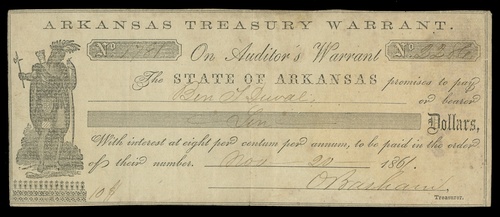 ARKANSAS TREASURY WARRANT.
No On Auditor's Warrant No
The STATE OF ARKANSAS promises to pay
Ben T. Duval, or bearer
Ten Dollars,
With interest at eight per centum per annum, to be paid in the order
of their number. Nov 20 1861.
10 $
Treasurer.